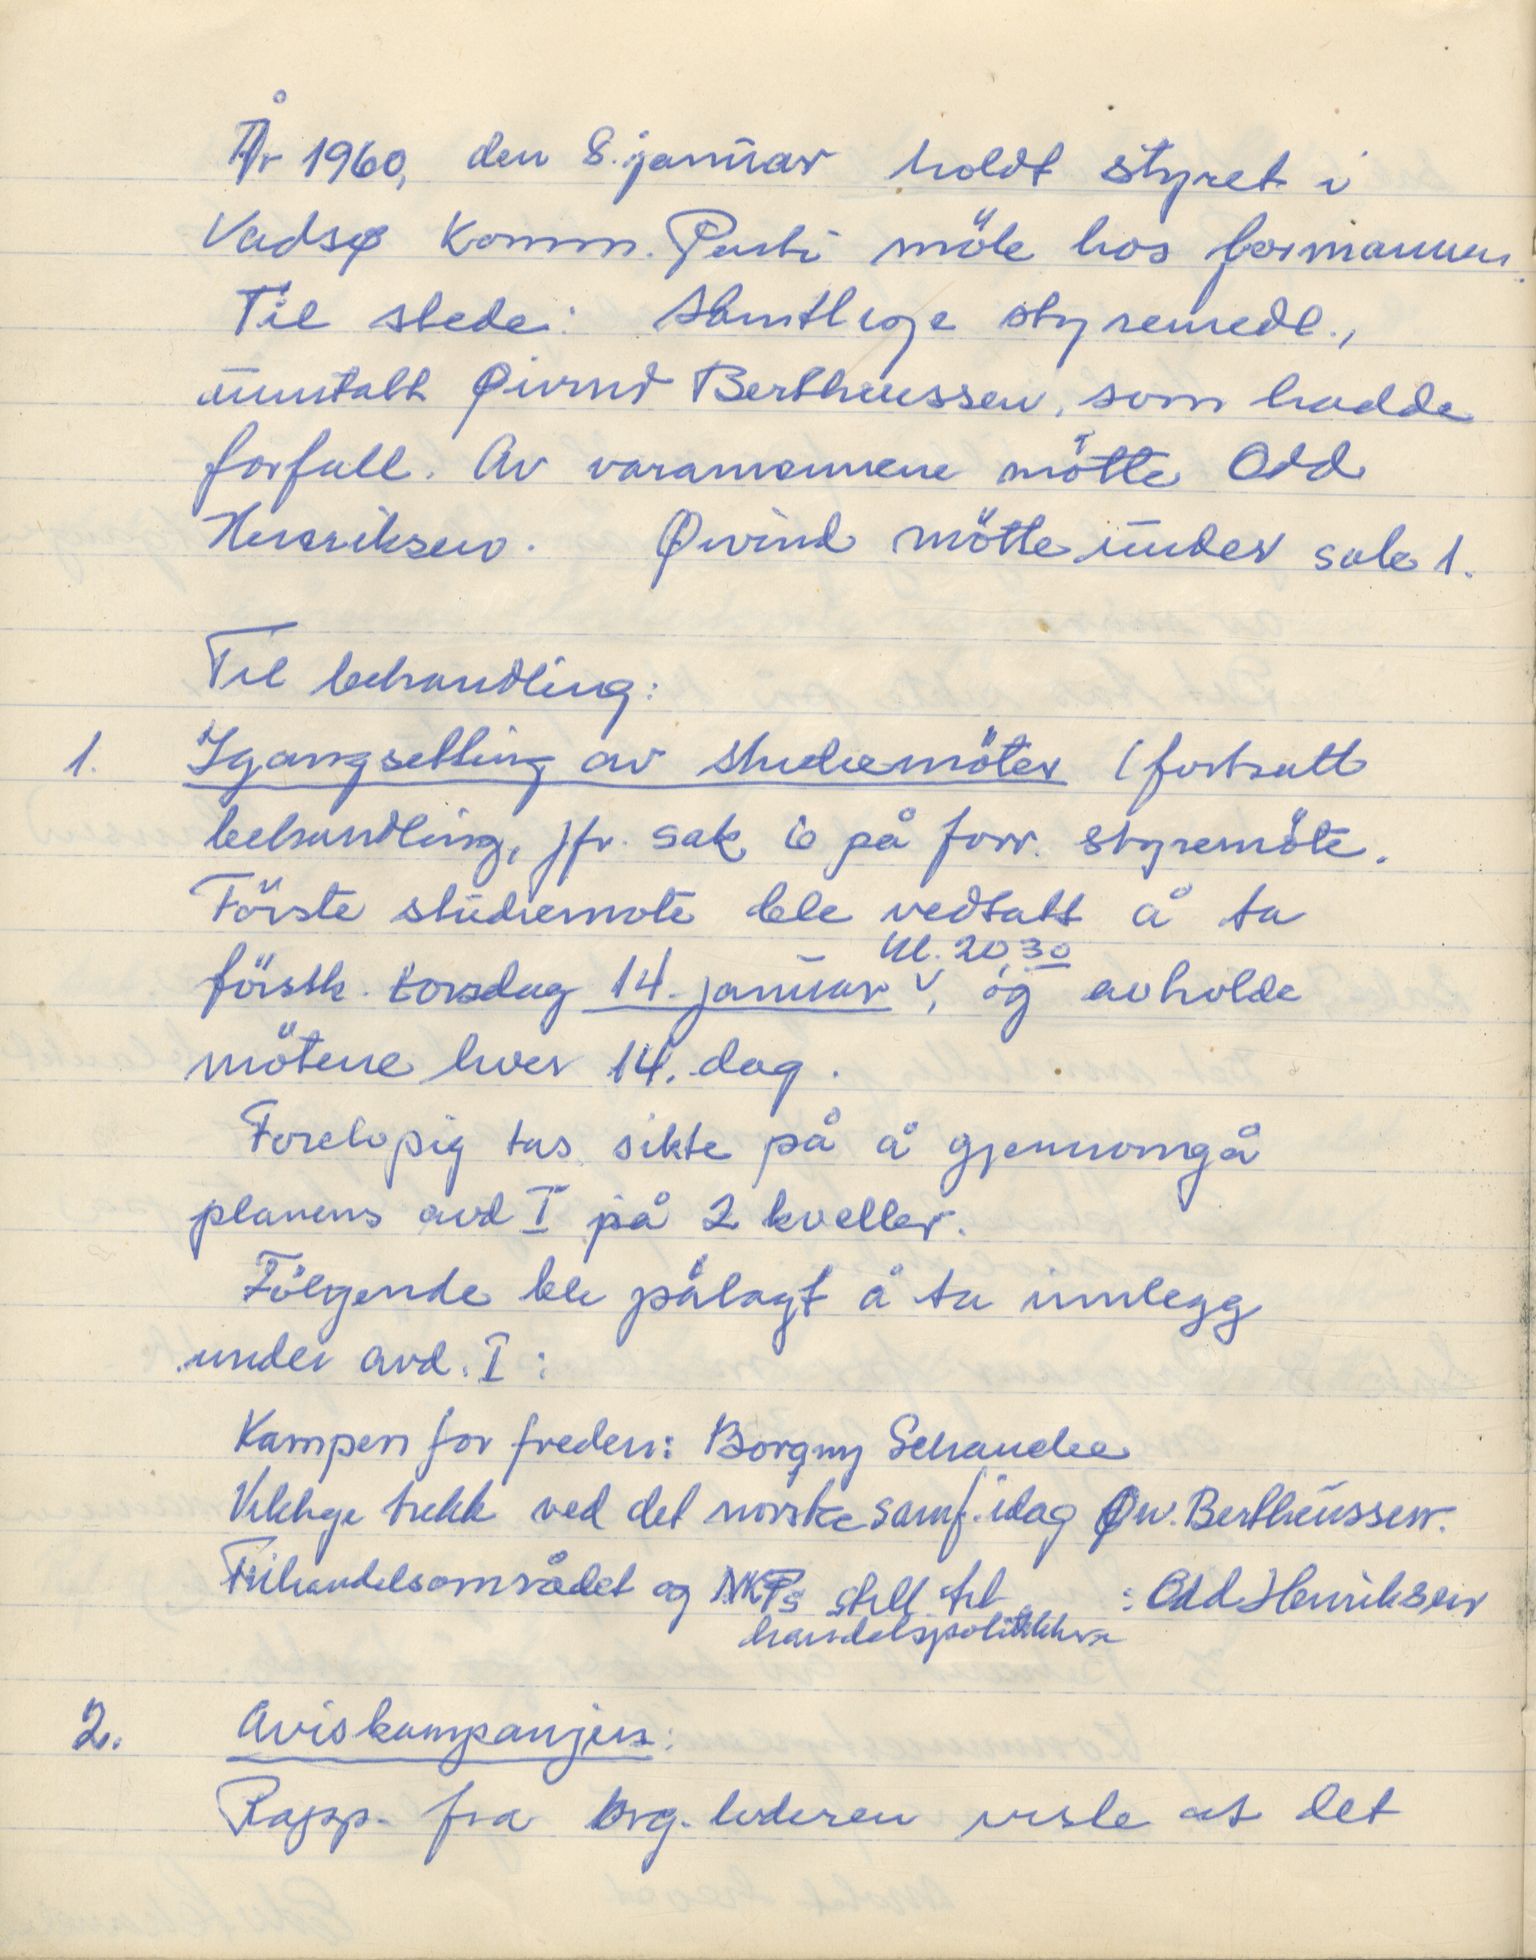 År 1960, den 8. januar holdt styret i
Vadsø Komm. Parti möte hos formannen.
Til stede: Samtlige styremedl.,
unntatt Øivind Bertheussen, som hadde
forfall. Av varamennene mötte Odd
Henriksen. Øivind mötte under sak 1.
Til behandling:
1. Igangsetting av studiemöter (fortsatt
behandling, jfr. sak 6 på forr. styremöte.
Förste studiemöte ble vedtatt å ta
kl. 20,30
förstk. torsdag 14. januar, og avholde
mötene hver 14. dag.
Forelöpig tas sikte på å gjennomgå
planens avd I på 2 kveller.
Fölgende ble pålagt å ta innlegg
under avd. I:
Kampen for freden: Borgny Schanche
Viktige trekk ved det norske samf. idag Øiv. Bertheussen.
Frihandelsområdet og NKPs still. til : Odd Henriksen
handelspolitikken
2. Aviskampanjen:
Rapp. fra org. lederen viste at det